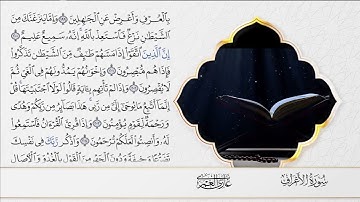 بِٱلْعُرْفِ وَأَعْرِضْ عَنِ ٱلْجَٰهِلِينَ ۝ وَإِمَّا يَنزَغَنَّكَ مِنَ
ٱلشَّيْطَٰنِ نَزْغٌ فَٱسْتَعِذْ بِٱللَّهِ إِنَّهُۥ سَمِيعٌ عَلِيمٌ ۝
إِنَّ ٱلَّذِينَ ٱتَّقَوْا۟ إِذَا مَسَّهُمْ طَٰٓئِفٌ مِّنَ ٱلشَّيْطَٰنِ تَذَكَّرُوا۟
فَإِذَا هُم مُّبْصِرُونَ ۝ وَإِخْوَٰنُهُمْ يَمُدُّونَهُمْ فِى ٱلْغَىِّ ثُمَّ
لَا يُقْصِرُونَ ۝ وَإِذَا لَمْ تَأْتِهِم بِـَٔايَةٍ قَالُوا۟ لَوْلَا ٱجْتَبَيْتَهَا قُلْ
إِنَّمَآ أَتَّبِعُ مَا يُوحَىٰٓ إِلَىَّ مِن رَّبِّى هَٰذَا بَصَآئِرُ مِن رَّبِّكُمْ وَهُدًى
وَرَحْمَةٌ لِّقَوْمٍ يُؤْمِنُونَ ۝ وَإِذَا قُرِئَ ٱلْقُرْءَانُ فَٱسْتَمِعُوا۟
لَهُۥ وَأَنصِتُوا۟ لَعَلَّكُمْ تُرْحَمُونَ ۝ وَٱذْكُر رَّبَّكَ فِى نَفْسِكَ
تَضَرُّعًا وَخِيفَةً وَدُونَ ٱلْجَهْرِ مِنَ ٱلْقَوْلِ بِٱلْغُدُوِّ وَٱلْءَاصَالِ
سورة الأعراف